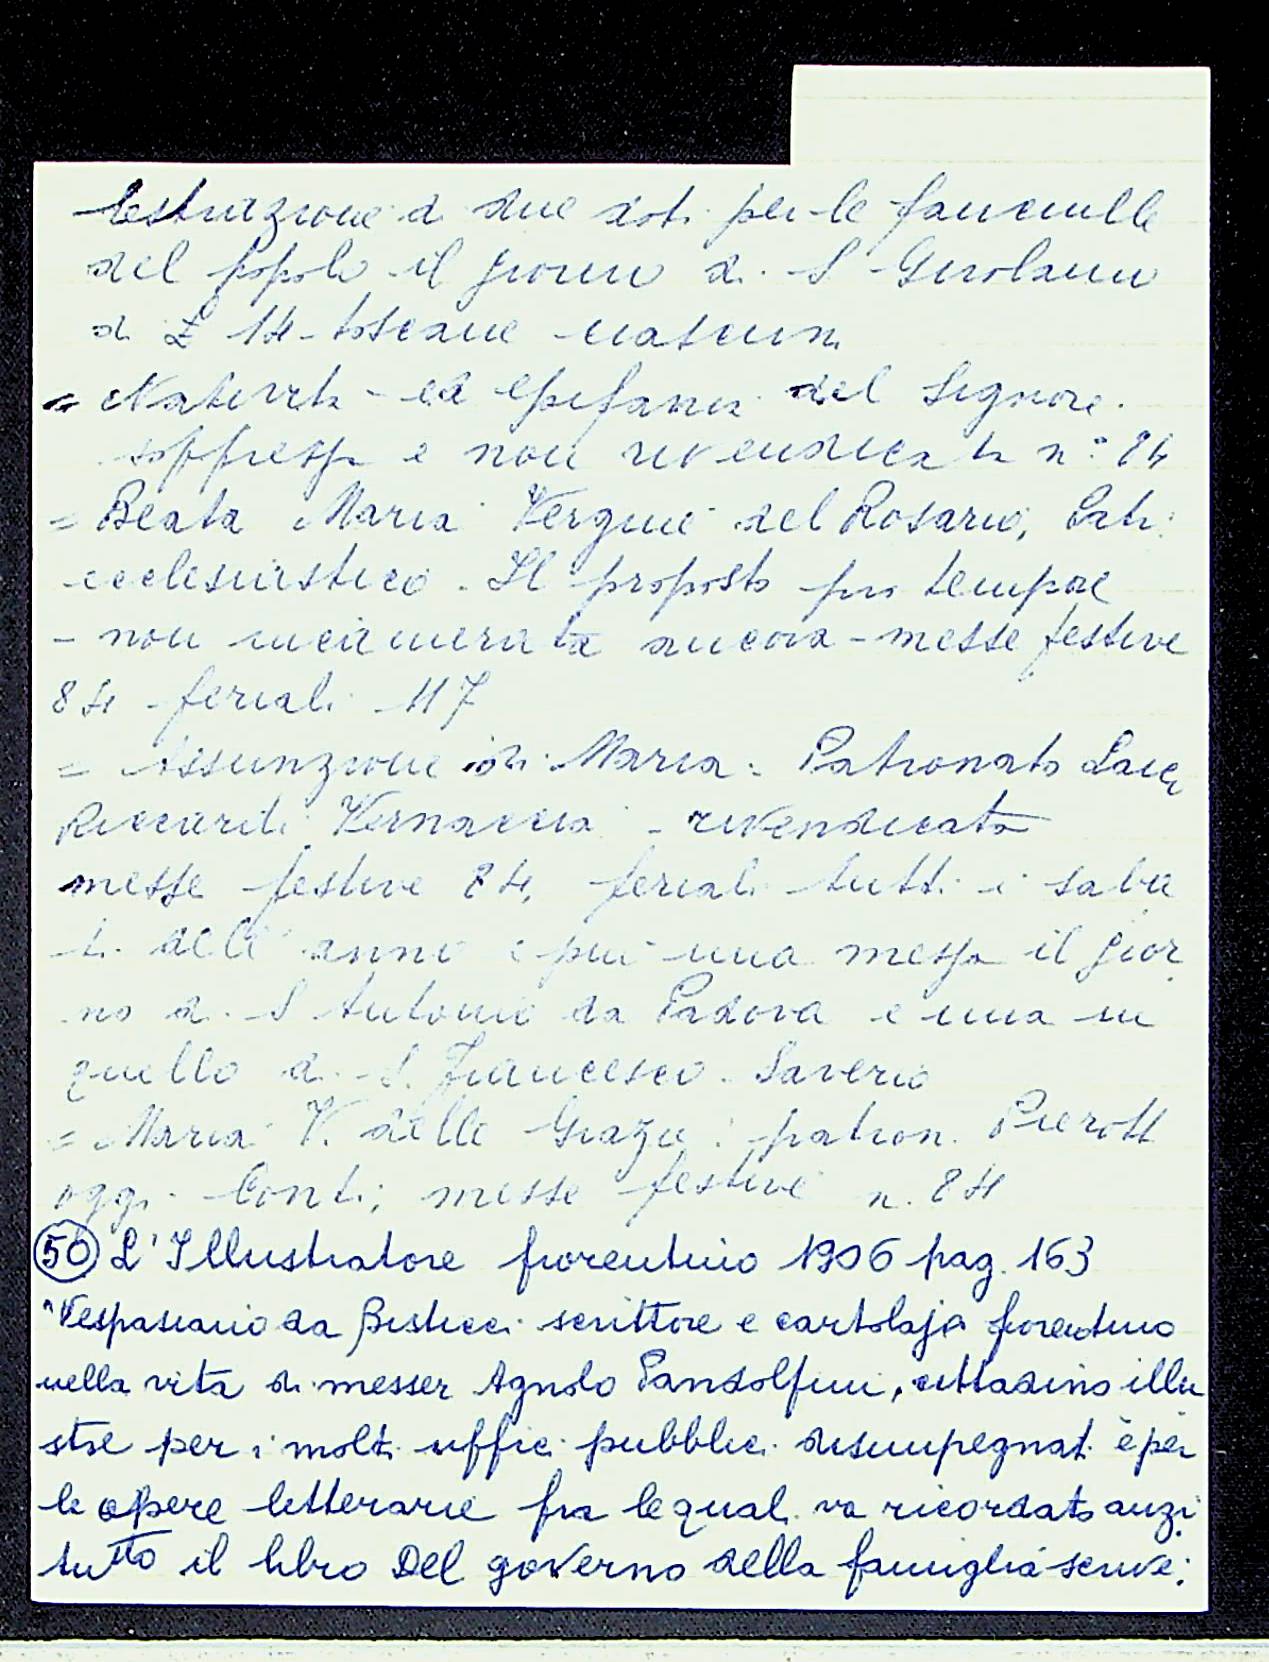 estrazione di due doti per le fanciulle
del popolo il giorno di S Girolamo
di £ 14 toscane ciascun.
= Natività ed Epifania del Signore.
soppressa e non rivendicata n° 84
= Beata Maria Vergine del Rosario, Patr.
ecclesiastico. Il proposto pro tempore
- non incamerata ancora - messe festive
84 feriali 117
= Assunzione di Maria: Patronato
Riccardi Vernaccia - rivendicata
messe festive 84, feriali tutti i saba
ti dell'anno e più una messa il gior
no di S Antonio da Padova e una in
quello di S. Francesco Saverio
= Maria V. delle Grazie: patron. Pierott
oggi Conti; messe festive n. 84
50 L'Illustratore fiorentino 1906 pag. 163
"Vespasiano da Bisticci scrittore e cartolajo fiorentino
nella vita di messer Agnolo Pandolfini, cittadino illu
stre per i molti uffici pubblici disimpegnati e per
le opere letterarie fra le quali va ricordato anzi
tutto il libro Del governo della famiglia scrive: